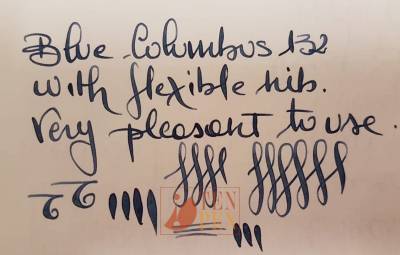 Blue Columbus 132
with flexible nib.
Very pleasant to use.
TEN
PEN